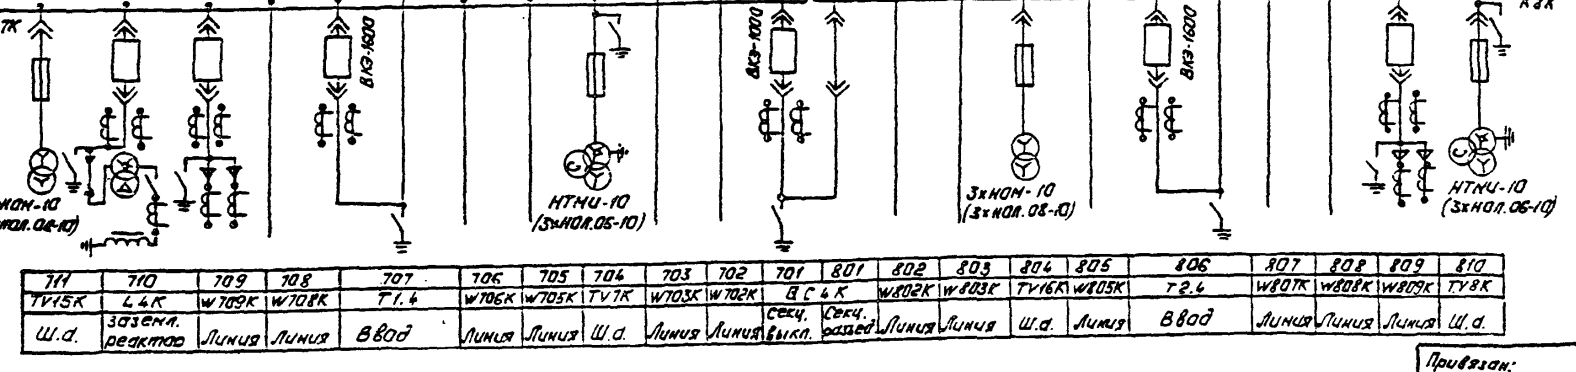 7К
ВКЭ-1600
ВКЭ-1000
ВКЭ-1600
К8К
НОМ-10
НОЛ.08-10)
С
НТМИ-10
(3хНОЛ.06-10)
3хНОМ-10
(3хНОЛ.08-10)
С
НТМИ-10
(3хНОЛ.06-10)
711 710 709 708 707 706 705 704 703 702 701 801 802 803 804 805 806 807 808 809 810
TV15K L4K W709K W708K T1.4 W706K W705K TV7K W703K W702K QC4K W802K W803K TV16K W805K T2.4 W807K W808K W809K TV8K
Ш.а. Заземл. реактор Линия Линия Ввод Линия Линия Ш.а. Линия Линия Секц. выкл. Секц. разъед Линия Линия Ш.а. Линия Ввод Линия Линия Линия Ш.а.
Привязан: